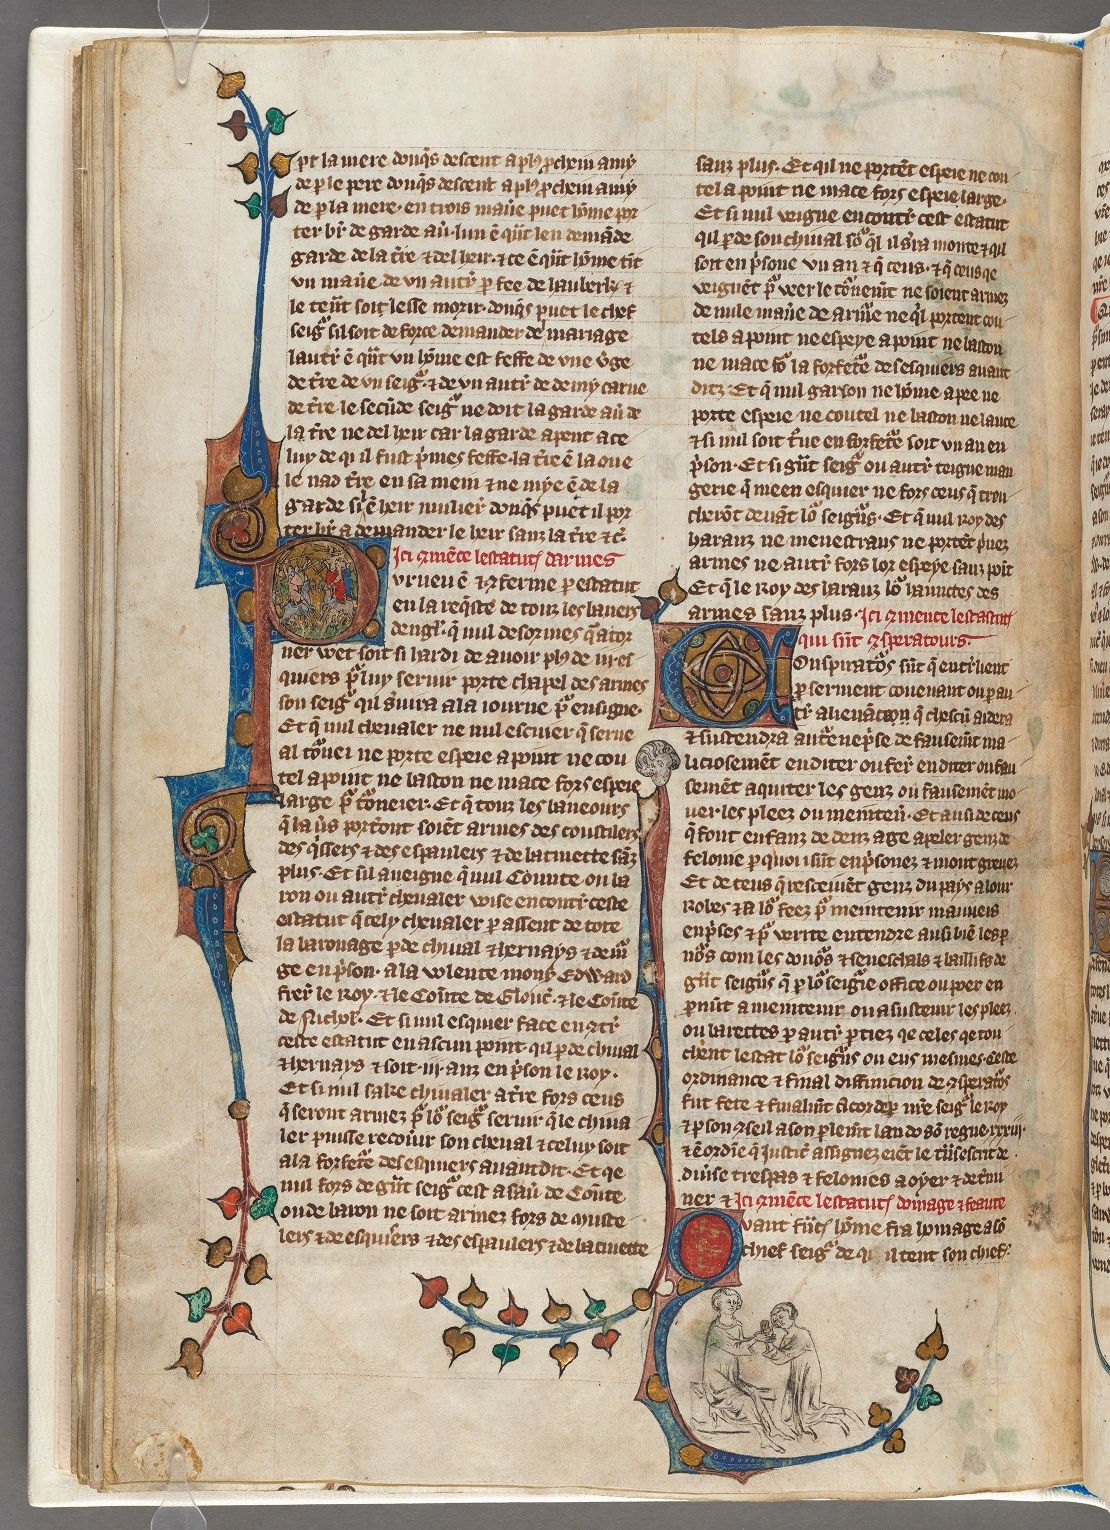 pt la mere donqs descent a plus prochein amy
de p le pere donqs descent a plus prochein amy
de p la mere. en trois man̄e puet hōme por
ter br̄ de garde au. lun ē qūt len demāde
garde de la t̄re & del heir. & ce ē qūt hōme tīt
un man̄e de vn autr̄ p fee de hauberk &
le ten̄t soit lesse morir. donqs puet le chef
seigr̄ sil soit de force demander de mariage
lautr̄ ē qūt vn hōme est feffe de vne v̄ge
de t̄re de vn seigr̄. & de vn autr̄ de demy carue
de t̄re le secūde seigr̄ ne doit la garde au de
la t̄re ne del heir car la garde apent a ce
luy de qi il fust p̄mes feffe. la t̄re ē la oue
le nad t̄re en sa mein & ne mye ē de la
garde si ē heir mulier donqs puet il por
ter br̄ a demander le heir sanz la t̄re &c̄.
Ici 9mēce lestatutz darmes
vrueu ē & 9ferme p estatut
en la reqste de touz les baneis
dengl̄. q̄ nul desormes q̄ a tor
ner wet soit si hardi de auoir plus de iii es
quiers pr̄ luy seruir porte chapel des armes
son seigr̄ qil s̄uira a la iourne pr̄ enseigne.
Et q̄ nul cheualer ne nul esquier q̄ serue
al t̄ouei ne porte espeie a point ne cou
tel a point ne baston ne mace fors espeie
large pr̄ t̄oneier. Et q̄ touz les baneours
q̄ baūs portont soiēt armes des coustilers
des qissers & des espaulers & de bacinette sāz
plus. Et sil aueigne q̄ nul Counte ou ba
ron ou autr̄ cheualer voise encontr̄ ceste
estatut q̄ cely cheualer p assent de tote
la baronage pde chiual & hernays & demr̄
ge en p̄son. a la volente mons̄ Edward
frer̄ le Roy. & le Coūte de Glouc̄. & le Coūte
de Nichol. Et si nul esquier face encōtr̄
ceste estatut en ascun point. qil pde chiual
& hernays & soit .iii. anz en p̄son le Roy.
Et si nul sake chiualer a t̄re fors ceus
q̄ seront armez pr̄ lor̄ seigr̄ seruir q̄ le chiua
ler puisse recour son cheual & celuy soit
a la forfete des esquiers auantdit. Et qe
nul fors de gnt seigr̄ cest a sau de Coūte
ou de baron ne soit armez fors de muste
lers & de esqisers & des espaulers & de bacinette
sanz plus. Et qil ne portēt espeie ne cou
tel a point ne mace fors espeie large.
Et si nul veigne encontr̄ cest estatut
qil pde son chiual sor̄ ql il s̄ra monte & qil
soit en p̄sone vn an & q̄ ceus. & q̄ ceus qe
veignēt pr̄ veer le t̄oūenut ne soient armez
de nule man̄e de arme ne ql portent cou
tels a point ne espeye a point ne baston
ne mace sor̄ la forfete des esquiers auant
ditz. Et q̄ nul garson ne hōme a pee ne
porte espeie ne coutel ne baston ne lance
& si nul soit t̄ue en forfete soit vn an en
p̄son. Et si gnt seigr̄ ou autr̄ teigne man
gerie q̄ meen esquier ne fors ceus q̄ tren
cherōt deuāt lor̄ seigūs. Et q̄ nul roy des
harauz ne menestraus ne portēt p̄uez
armes ne autr̄ fors lor espeye sanz poīt
Et q̄ le Roy des harauz lor̄ haunctes des
armes sanz plus. Ici 9mence lestatut
qui sūt 9speratours.
Onspirators̄ sūt q̄ entr̄lient
p serment couenant ou p au
tr̄ alienācion q̄ chescū aidera
& sustendra autr̄e nep̄se de fausemt̄ ma
liciosemēt enditer ou fer̄ enditer ou fau
semēt aquiter les genz ou fausemēt mo
uer les pleez ou meintein̄. Et ausi de ceus
q̄ font enfanz de denz age apeler genz de
felonie p quoi i sūt enp̄sonez & mout greuez
Et de ceus q̄ resceiuēt genz du pays a lour
robes & a lor̄ feez pr̄ meintenir mauueis
enp̄ses & pr̄ verite entendre ausi biē les p
nors̄ com les donors̄ & seneschals & baillifs de
gn̄t seigūs q̄ p lor̄ seigr̄ie office ou poer en
pnūt a meintenir ou a sustenir les pleez
ou barettes p autr̄ p tiez qe celes qe tou
chent lestat lor̄ seigūs ou eus mesmes. Ceste
ordinance & final diffinicion de 9sperators̄
fut fete & finalmt̄ acordep nr̄e seigr̄ le Roy
& p son 9seil a son plemt̄ lan do sōn regne .xxxiij.
& ē ordīe q̄ justic̄ assignez
diu̇se trespas & felonies a oyer & det̄mi
ner & Ici 9mēce lestatutz domage & feaute
vant frāc hōme fra homage a so
chief seigr̄ de qi il tent son chief